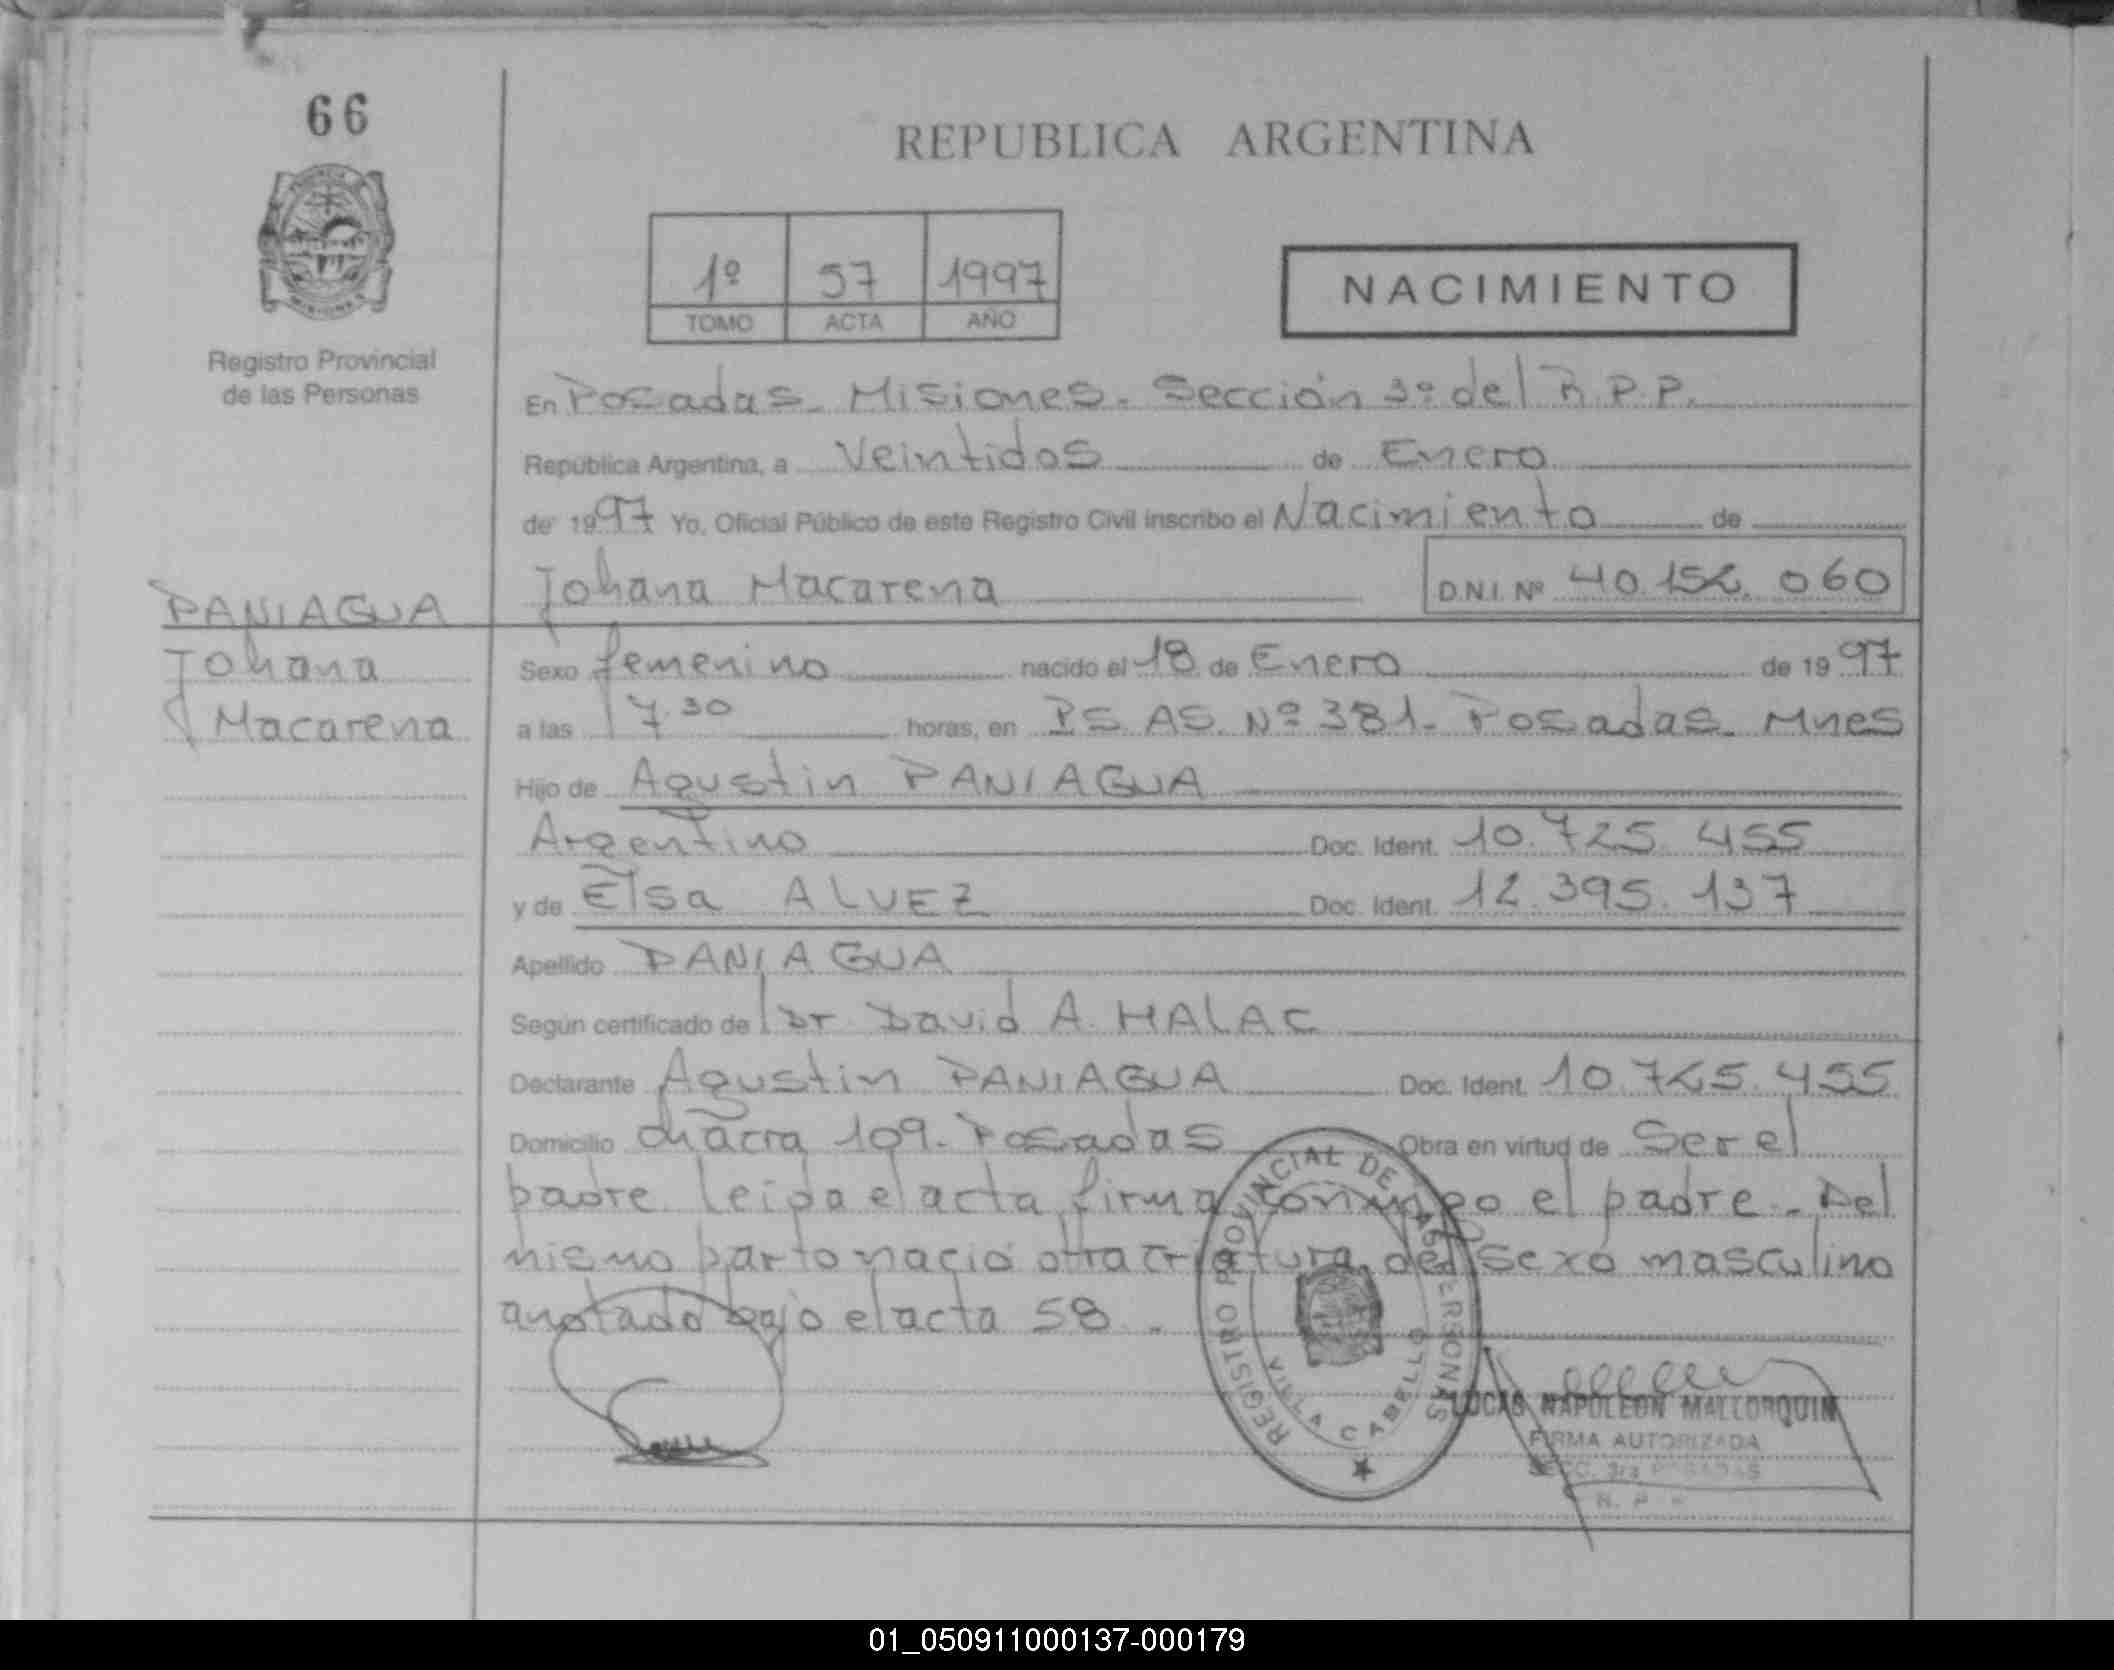 66
REPUBLICA ARGENTINA
1º 57 1997
TOMO ACTA AÑO
NACIMIENTO
Registro Provincial
de las Personas
En Posadas. Misiones. Sección 3º del R.P.P.
República Argentina, a Veintidos de Enero
de 1997 Yo, Oficial Público de este Registro Civil inscribo el Nacimiento de
Johana Macarena D.N.I. Nº 40.152.060
PANIAGUA
Johana
Macarena
Sexo femenino nacido el 18 de Enero de 1997
a las 7.30 horas, en PS. AS. Nº 381. Posadas. Mnes
Hijo de Agustin PANIAGUA
Argentino Doc. Ident. 10.725.455
y de Elsa ALVEZ Doc. Ident. 12.395.137
Apellido PANIAGUA
Según certificado de Dr David A. HALAC
Declarante Agustin PANIAGUA Doc. Ident. 10.725.455
Domicilio chacra 109. Posadas Obra en virtud de Ser el
padre. Leida el acta firma conmigo el padre. Del
mismo parto nació otra criatura del sexo masculino
anotado bajo el acta 58.
REGISTRO PROVINCIAL DE LAS PERSONAS
VILLA CABELLO
LUCAS NAPOLEON MALLORQUIN
FIRMA AUTORIZADA
SECC. 3ra POSADAS
01_050911000137-000179